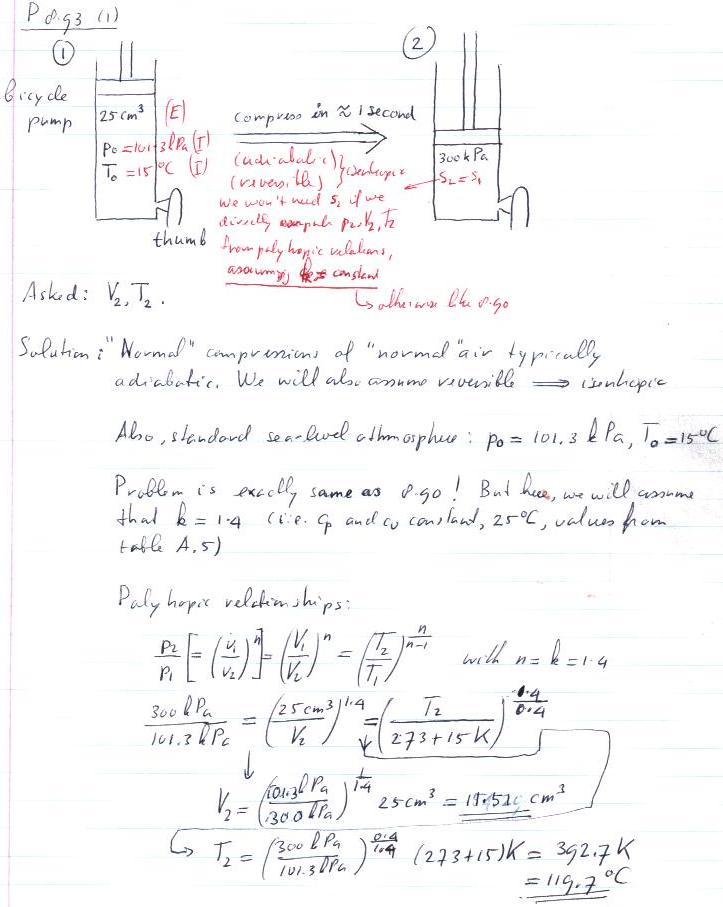 P 8.93 (1)
①
②
bicycle
pump
25 cm³ (E)
P₀ = 101.3 kPa (I)
T₀ = 15 °C (I)
thumb
compress in ≈ 1 second
(adiabatic) } isentropic
(reversible)
we won't need s₂ if we
directly compute p₂, V₂, T₂
from polytropic relations,
assuming k = constant
↳ otherwise like 8.90
300 kPa
s₂ = s₁
Asked: V₂, T₂.
Solution: "Normal" compressions of "normal" air typically
adiabatic. We will also assume reversible ⟹ isentropic
Also, standard sea-level athmosphere: p₀ = 101.3 kPa, T₀ = 15°C
Problem is exactly same as 8.90! But here, we will assume
that k = 1.4 (i.e. cp and cv constant, 25°C, values from
table A.5)
Polytropic relationships:
p₂/p₁ [= (v₁/v₂)ⁿ] = (V₁/V₂)ⁿ = (T₂/T₁)^(n/(n-1)) with n = k = 1.4
300 kPa / 101.3 kPa = (25 cm³ / V₂)^1.4 = (T₂ / 273+15 K)^(1.4/0.4)
V₂ = (101.3 kPa / 300 kPa)^(1/1.4) 25 cm³ = cm³
T₂ = (300 kPa / 101.3 kPa)^(0.4/1.4) (273+15)K = 392.7 K
= 119.7 °C